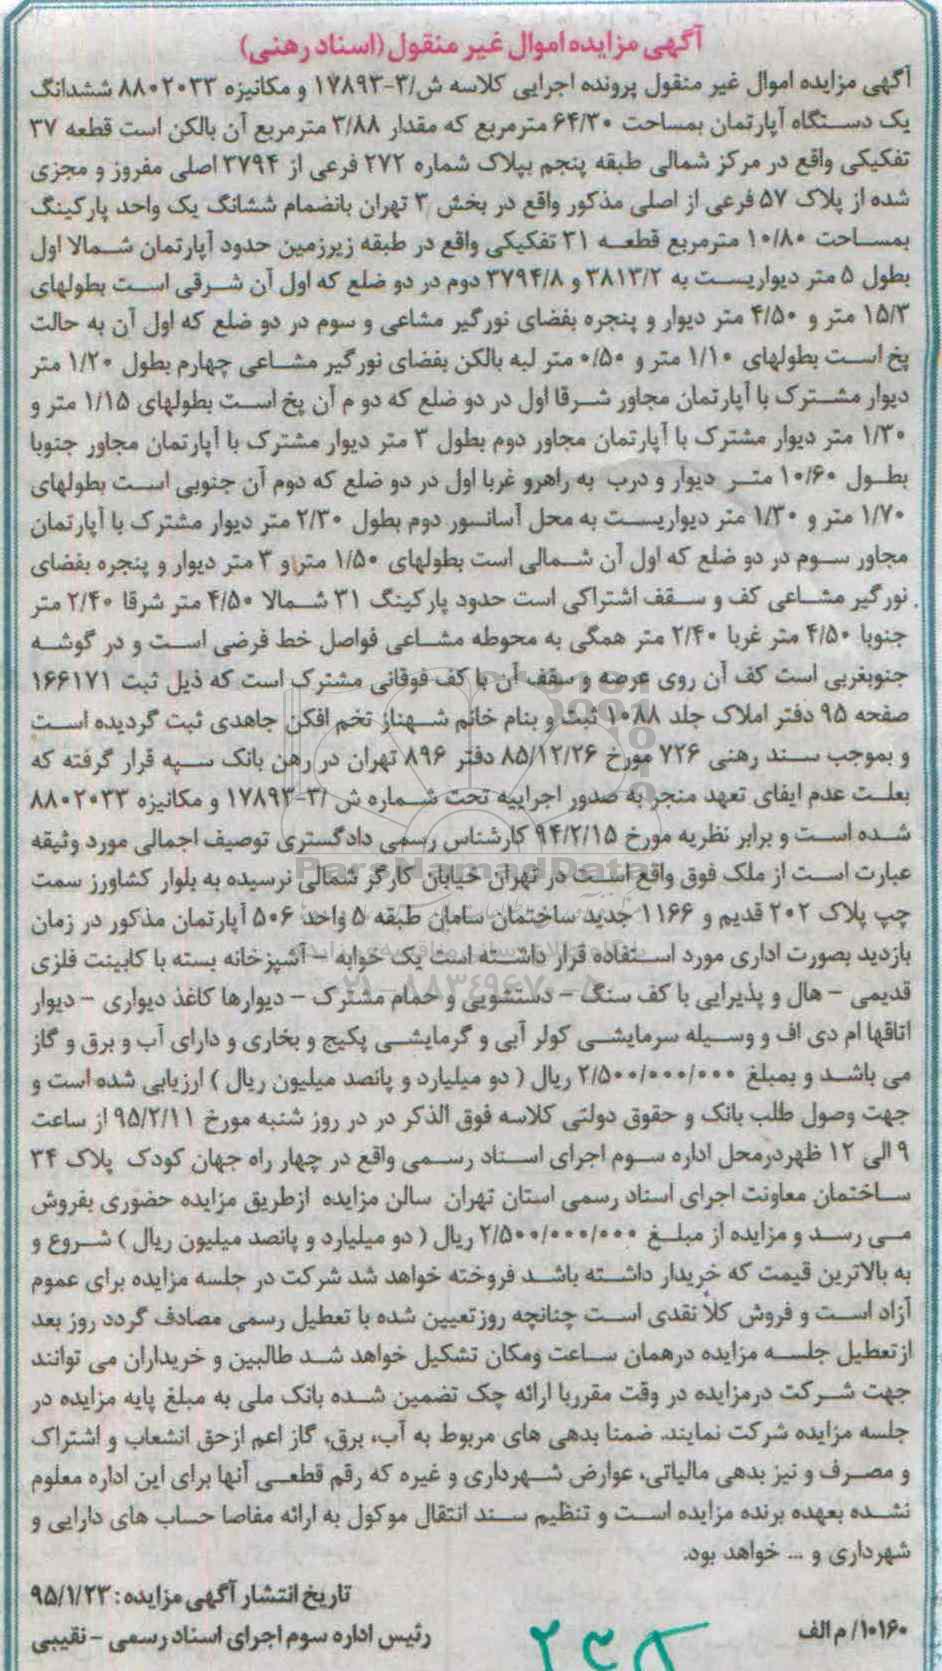 آگهی مزایده اموال غیر منقول (اسناد رهنی)
آگهی مزایده اموال غیر منقول پرونده اجرایی کلاسه ش/۳-۱۷۸۹۳ و مکانیزه ۸۸۰۲۰۳۳ ششدانگ
یک دستگاه آپارتمان بمساحت ۶۴/۳۰ مترمربع که مقدار ۳/۸۸ مترمربع آن بالکن است قطعه ۳۷
تفکیکی واقع در مرکز شمالی طبقه پنجم بپلاک شماره ۲۷۲ فرعی از ۳۷۹۴ اصلی مفروز و مجزی
شده از پلاک ۵۷ فرعی از اصلی مذکور واقع در بخش ۳ تهران بانضمام ششانگ یک واحد پارکینگ
بمساحت ۱۰/۸۰ مترمربع قطعه ۳۱ تفکیکی واقع در طبقه زیرزمین حدود آپارتمان شمالا اول
بطول ۵ متر دیواریست به ۳۸۱۳/۲ و ۳۷۹۴/۸ دوم در دو ضلع که اول آن شرقی است بطولهای
۱۵/۳ متر و ۴/۵۰ متر دیوار و پنجره بفضای نورگیر مشاعی و سوم در دو ضلع که اول آن به حالت
پخ است بطولهای ۱/۱۰ متر و ۰/۵۰ متر لبه بالکن بفضای نورگیر مشاعی چهارم بطول ۱/۲۰ متر
دیوار مشترک با آپارتمان مجاور شرقا اول در دو ضلع که دو م آن پخ است بطولهای ۱/۱۵ متر و
۱/۳۰ متر دیوار مشترک با آپارتمان مجاور دوم بطول ۳ متر دیوار مشترک با آپارتمان مجاور جنوبا
بطول ۱۰/۶۰ متر دیوار و درب به راهرو غربا اول در دو ضلع که دوم آن جنوبی است بطولهای
۱/۷۰ متر و ۱/۳۰ متر دیواریست به محل آسانسور دوم بطول ۲/۳۰ متر دیوار مشترک با آپارتمان
مجاور سوم در دو ضلع که اول آن شمالی است بطولهای ۱/۵۰ متر و ۳ متر دیوار و پنجره بفضای
نورگیر مشاعی کف و سقف اشتراکی است حدود پارکینگ ۳۱ شمالا ۴/۵۰ متر شرقا ۲/۴۰ متر
جنوبا ۴/۵۰ متر غربا ۲/۴۰ متر همگی به محوطه مشاعی فواصل خط فرضی است و در گوشه
جنوبغربی است کف آن روی عرصه و سقف آن با کف فوقانی مشترک است که ذیل ثبت ۱۶۶۱۷۱
صفحه ۹۵ دفتر املاک جلد ۱۰۸۸ ثبت و بنام خانم شهناز تخم افکن جاهدی ثبت گردیده است
و بموجب سند رهنی ۷۲۶ مورخ ۸۵/۱۲/۲۶ دفتر ۸۹۶ تهران در رهن بانک سپه قرار گرفته که
بعلت عدم ایفای تعهد منجر به صدور اجراییه تحت شماره ش /۳-۱۷۸۹۳ و مکانیزه ۸۸۰۲۰۳۳
شده است و برابر نظریه مورخ ۹۴/۲/۱۵ کارشناس رسمی دادگستری توصیف اجمالی مورد وثیقه
عبارت است از ملک فوق واقع است در تهران خیابان کارگر شمالی نرسیده به بلوار کشاورز سمت
چپ پلاک ۲۰۲ قدیم و ۱۱۶۶ جدید ساختمان سامان طبقه ۵ واحد ۵۰۶ آپارتمان مذکور در زمان
بازدید بصورت اداری مورد استفاده قرار داشته است یک خوابه - آشپزخانه بسته با کابینت فلزی
قدیمی - هال و پذیرایی با کف سنگ - دستشویی و حمام مشترک - دیوارها کاغذ دیواری - دیوار
اتاقها ام دی اف و وسیله سرمایشی کولر آبی و گرمایشی پکیج و بخاری و دارای آب و برق و گاز
می باشد و بمبلغ ۲/۵۰۰/۰۰۰/۰۰۰ ریال ( دو میلیارد و پانصد میلیون ریال ) ارزیابی شده است و
جهت وصول طلب بانک و حقوق دولتی کلاسه فوق الذکر در در روز شنبه مورخ ۹۵/۲/۱۱ از ساعت
۹ الی ۱۲ ظهردرمحل اداره سوم اجرای اسناد رسمی واقع در چهار راه جهان کودک پلاک ۳۴
ساختمان معاونت اجرای اسناد رسمی استان تهران سالن مزایده ازطریق مزایده حضوری بفروش
می رسد و مزایده از مبلغ ۲/۵۰۰/۰۰۰/۰۰۰ ریال ( دو میلیارد و پانصد میلیون ریال ) شروع و
به بالاترین قیمت که خریدار داشته باشد فروخته خواهد شد شرکت در جلسه مزایده برای عموم
آزاد است و فروش کلا نقدی است چنانچه روزتعیین شده با تعطیل رسمی مصادف گردد روز بعد
ازتعطیل جلسه مزایده درهمان ساعت ومکان تشکیل خواهد شد طالبین و خریداران می توانند
جهت شرکت درمزایده در وقت مقرربا ارائه چک تضمین شده بانک ملی به مبلغ پایه مزایده در
جلسه مزایده شرکت نمایند. ضمنا بدهی های مربوط به آب، برق، گاز اعم ازحق انشعاب و اشتراک
و مصرف و نیز بدهی مالیاتی، عوارض شهرداری و غیره که رقم قطعی آنها برای این اداره معلوم
نشده بعهده برنده مزایده است و تنظیم سند انتقال موکول به ارائه مفاصا حساب های دارایی و
شهرداری و ... خواهد بود.
تاریخ انتشار آگهی مزایده : ۹۵/۱/۲۳
۱۰۱۶۰/م الف
رئیس اداره سوم اجرای اسناد رسمی - نقیبی
ParsNamadData
۰۲۱-۸۸۳۴۹۶۷۰-۵